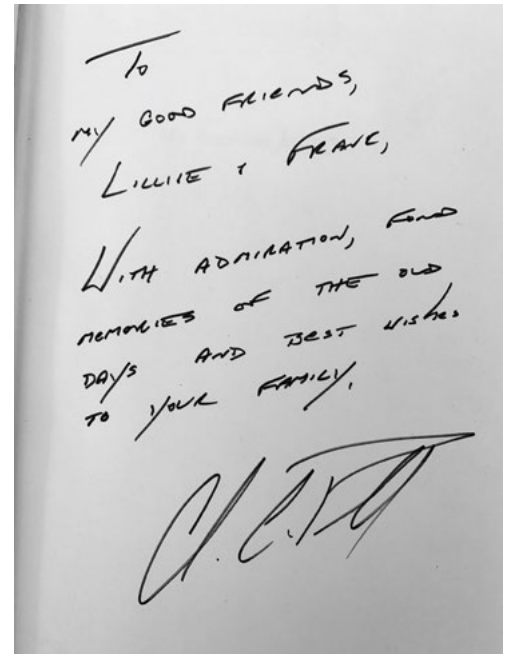 To
MY GOOD FRIENDS,
LILLIE + FRANK,
WITH ADMIRATION, FOND
MEMORIES OF THE OLD
DAYS AND BEST WISHES
TO YOUR FAMILY.